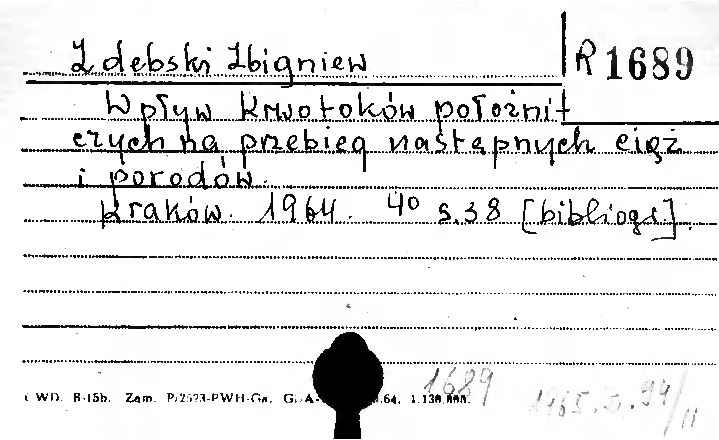 Zdębski Zbigniew
R 1689
Wpływ krwotoków położni-
czych na przebieg następnych ciąż
i porodów.
Kraków. 1964. 4° s. 38 [bibliogr].
1689
WD. R-15b. Zam. P/2523-PWH-Ga. 64. 1.130.000.
1965. 94/11